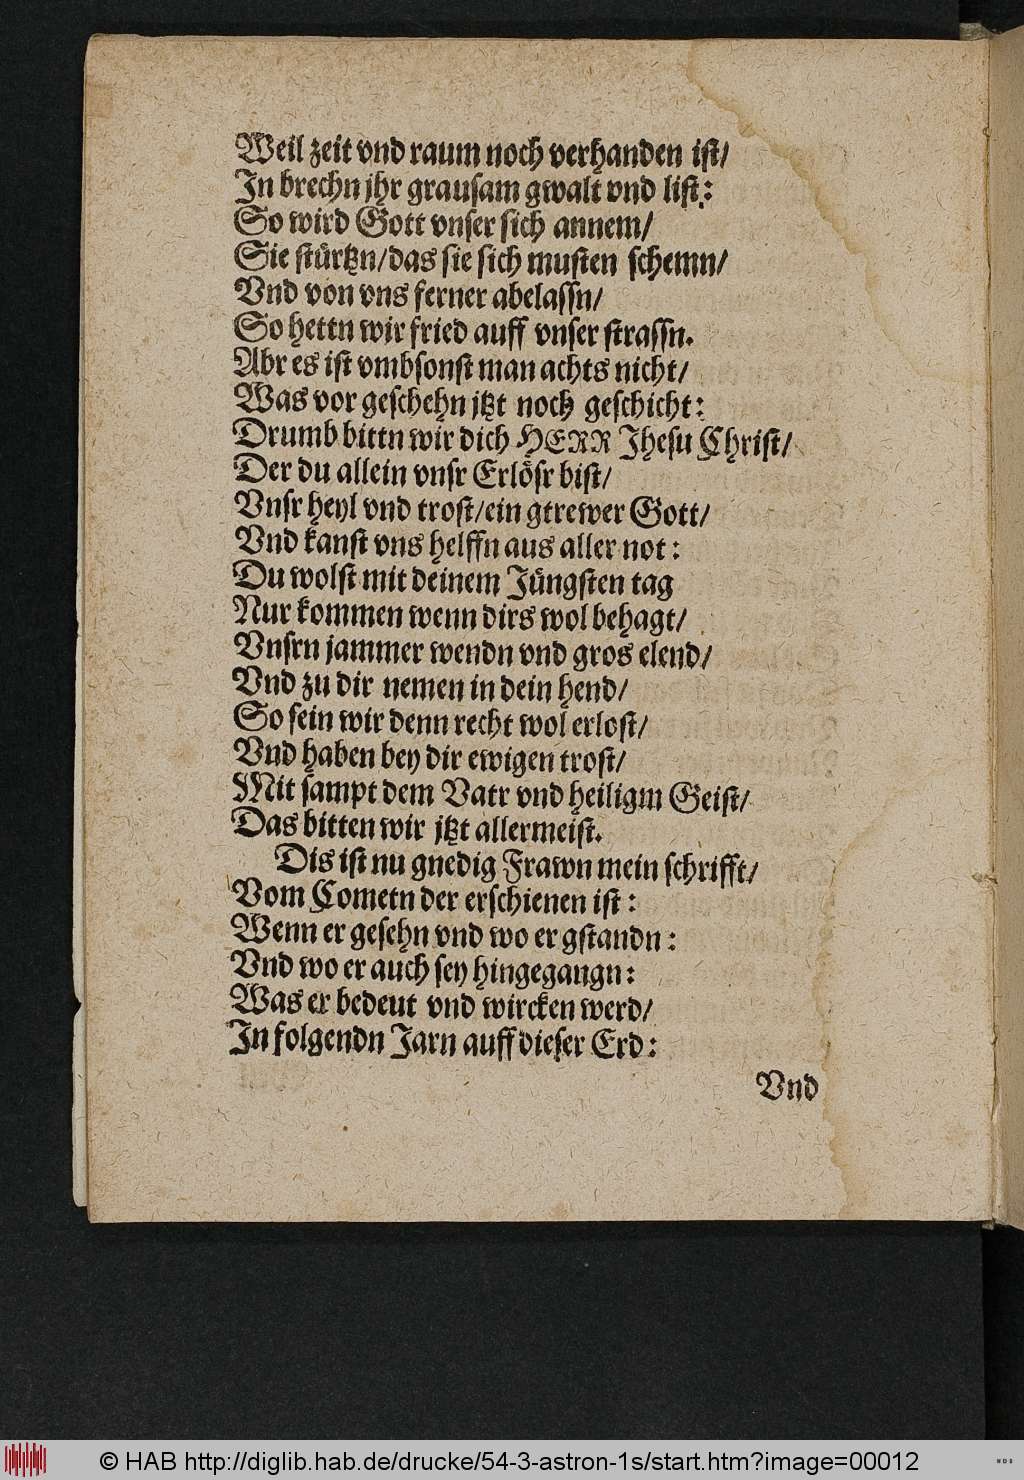 Weil zeit vnd raum noch verhanden ist/
In brechn jhr grausam gwalt vnd list:
So wird Gott vnser sich annem/
Sie stürtzn/das sie sich musten schemn/
Vnd von vns ferner abelassn/
So hettn wir fried auff vnser strassn.
Abr es ist vmbsonst man achts nicht/
Was vor geschehn jtzt noch geschicht:
Drumb bittn wir dich HERR Jhesu Christ/
Der du allein vnsr Erlösr bist/
Vnsr heyl vnd trost/ein gtrewer Gott/
Vnd kanst vns helffn aus aller not:
Du wolst mit deinem Jüngsten tag
Nur kommen wenn dirs wol behagt/
Vnsrn jammer wendn vnd gros elend/
Vnd zu dir nemen in dein hend/
So sein wir denn recht wol erlost/
Vnd haben bey dir ewigen trost/
Mit sampt dem Vatr vnd heiligm Geist/
Das bitten wir jtzt allermeist.
Dis ist nu gnedig Frawn mein schrifft/
Vom Cometn der erschienen ist:
Wenn er gesehn vnd wo er gstandn:
Vnd wo er auch sey hingegangn:
Was er bedeut vnd wircken werd/
In folgendn Jarn auff dieser Erd:
Vnd
© HAB http://diglib.hab.de/drucke/54-3-astron-1s/start.htm?image=00012